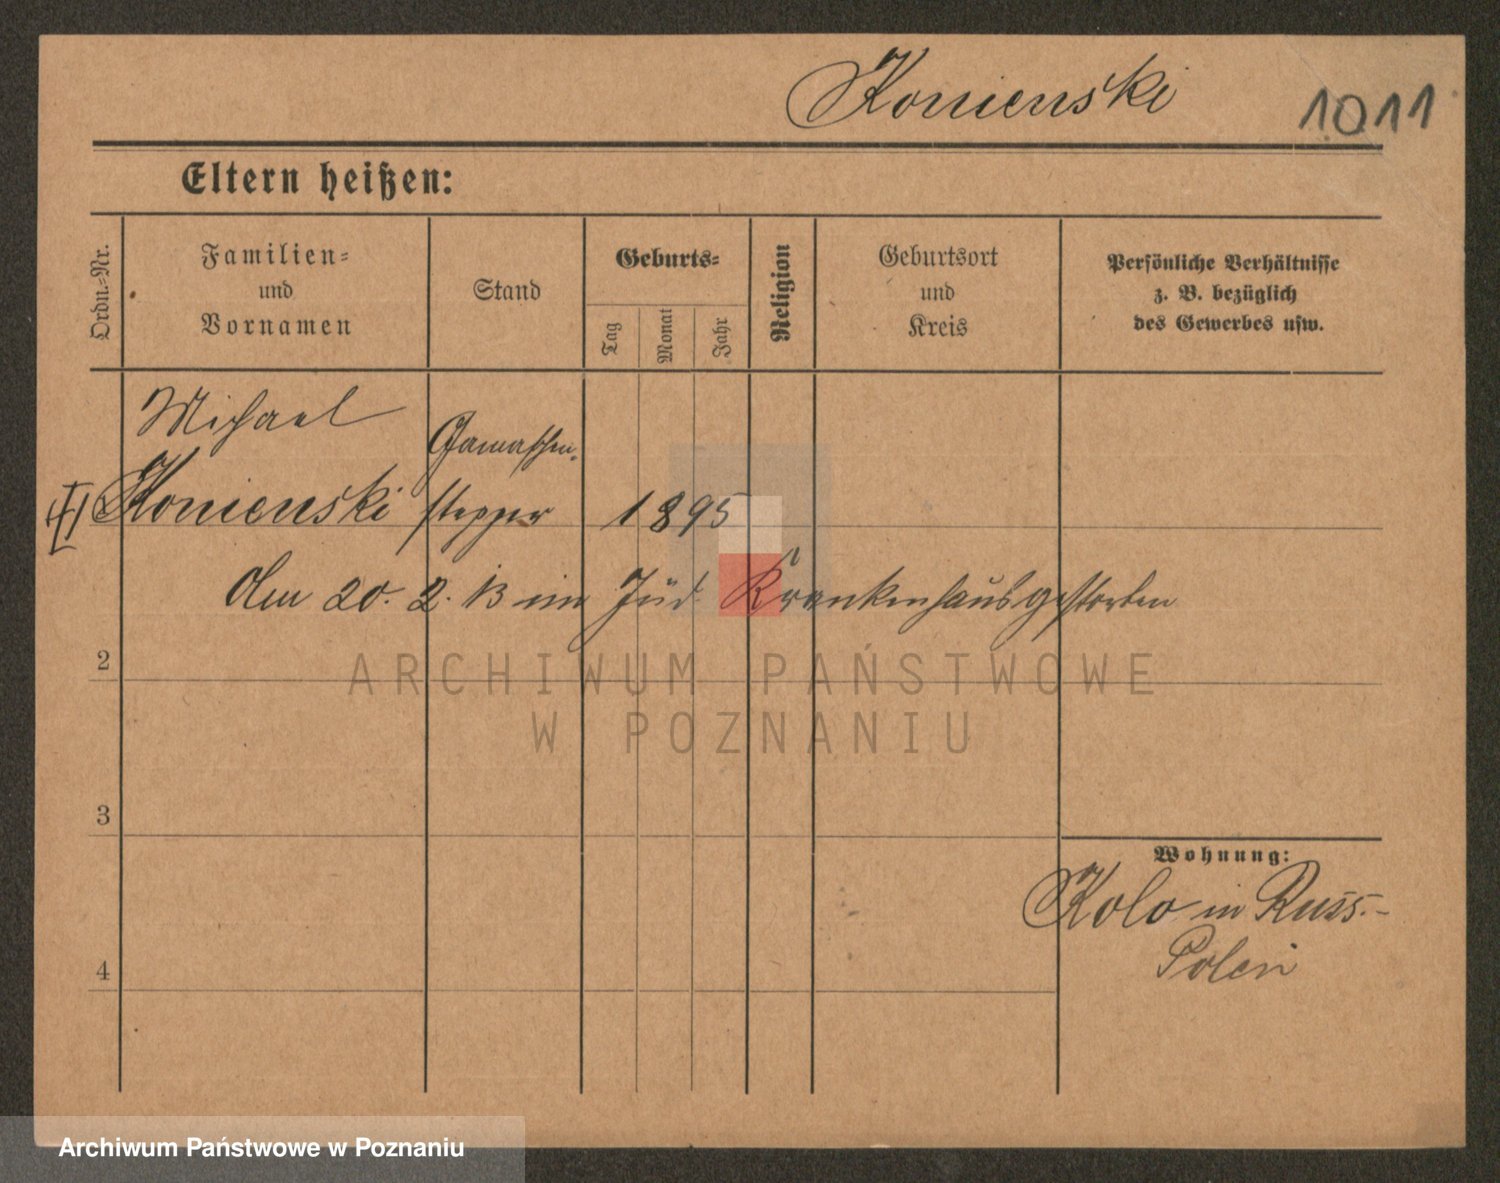 Konienski 1011
Eltern heißen:
Ordn.-Nr.
Familien-
und
Vornamen
Stand
Geburts-
Tag
Monat
Jahr
Religion
Geburtsort
und
Kreis
Persönliche Verhältnisse
z. B. bezüglich
des Gewerbes usw.
Michael
Gamaschen-
Konienski stepper 1895
Am 20. 2. 13 im Jüd. Krankenhaus gestorben
2
ARCHIWUM PAŃSTWOWE
W POZNANIU
3
Wohnung:
Kolo in Russ.-
Polen
4
Archiwum Państwowe w Poznaniu